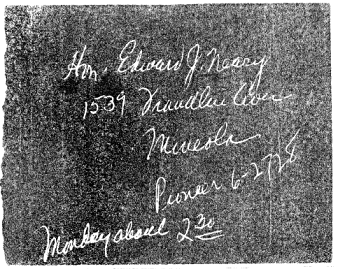 Hon. Edward J. Neary
1539 Franklin Ave
Mineola
Pioneer 6-2728
Monday about 2 30